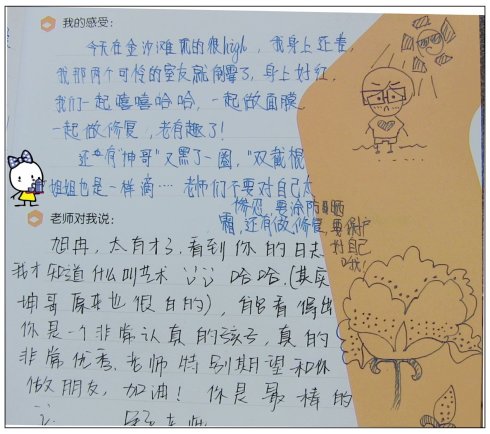 我的感受：
今天在金沙滩玩的很high，我身上还差，
我那两个可怜的室友就倒霉了，身上好红，
我们一起嘻嘻哈哈，一起做面膜
一起做修复，老有趣了！
还有"坤哥"又黑了一圈，"双截棍"
姐姐也是一样滴…老师们不要对自己太
惨忍，要涂防晒
霜，还有做修复，要保护
好自己
哦！
老师对我说：
旭冉，太有才了，看到你的日志
我才知道什么叫艺术 哈哈（其实
坤哥原来也很白的），能看得出
你是一个非常认真的孩子，真的
非常优秀，老师特别期望和你
做朋友，加油！你是最棒的